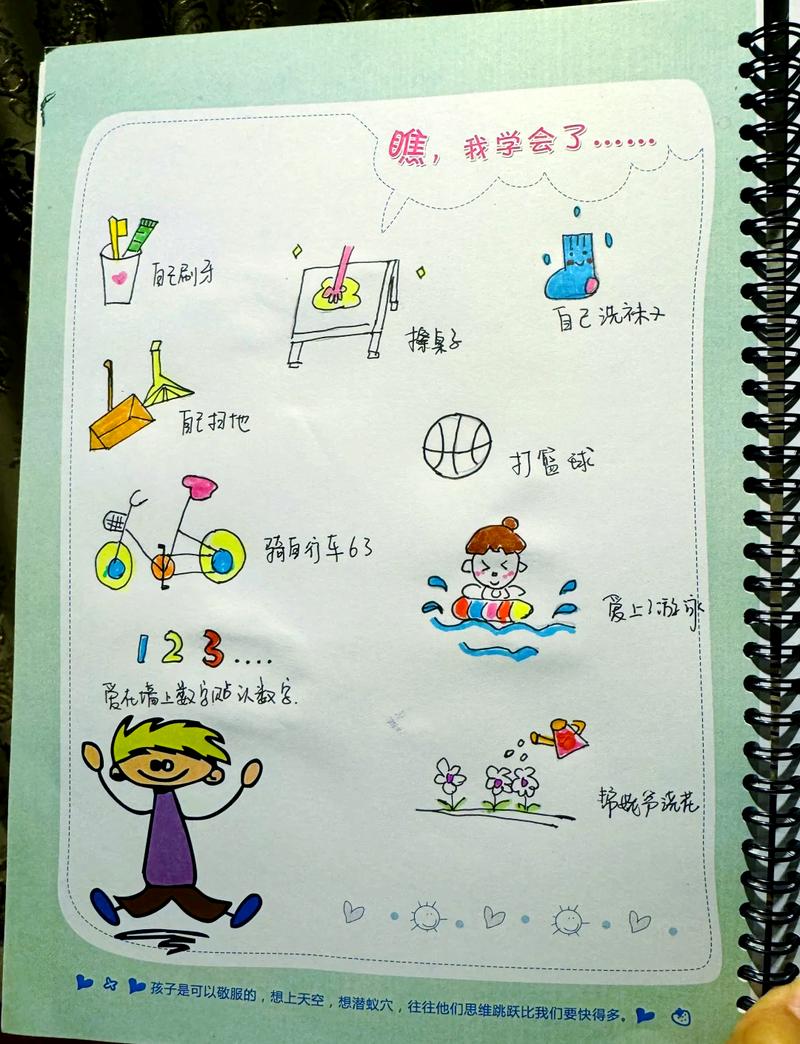 瞧，我学会了……
自己刷牙
擦桌子
自己洗袜子
自己扫地
打篮球
骑自行车
爱上了游泳
1 2 3 ....
爱在墙上数字贴认数字.
帮姥爷浇花
孩子是可以敬服的，想上天空，想潜蚁穴，往往他们思维跳跃比我们要快得多。